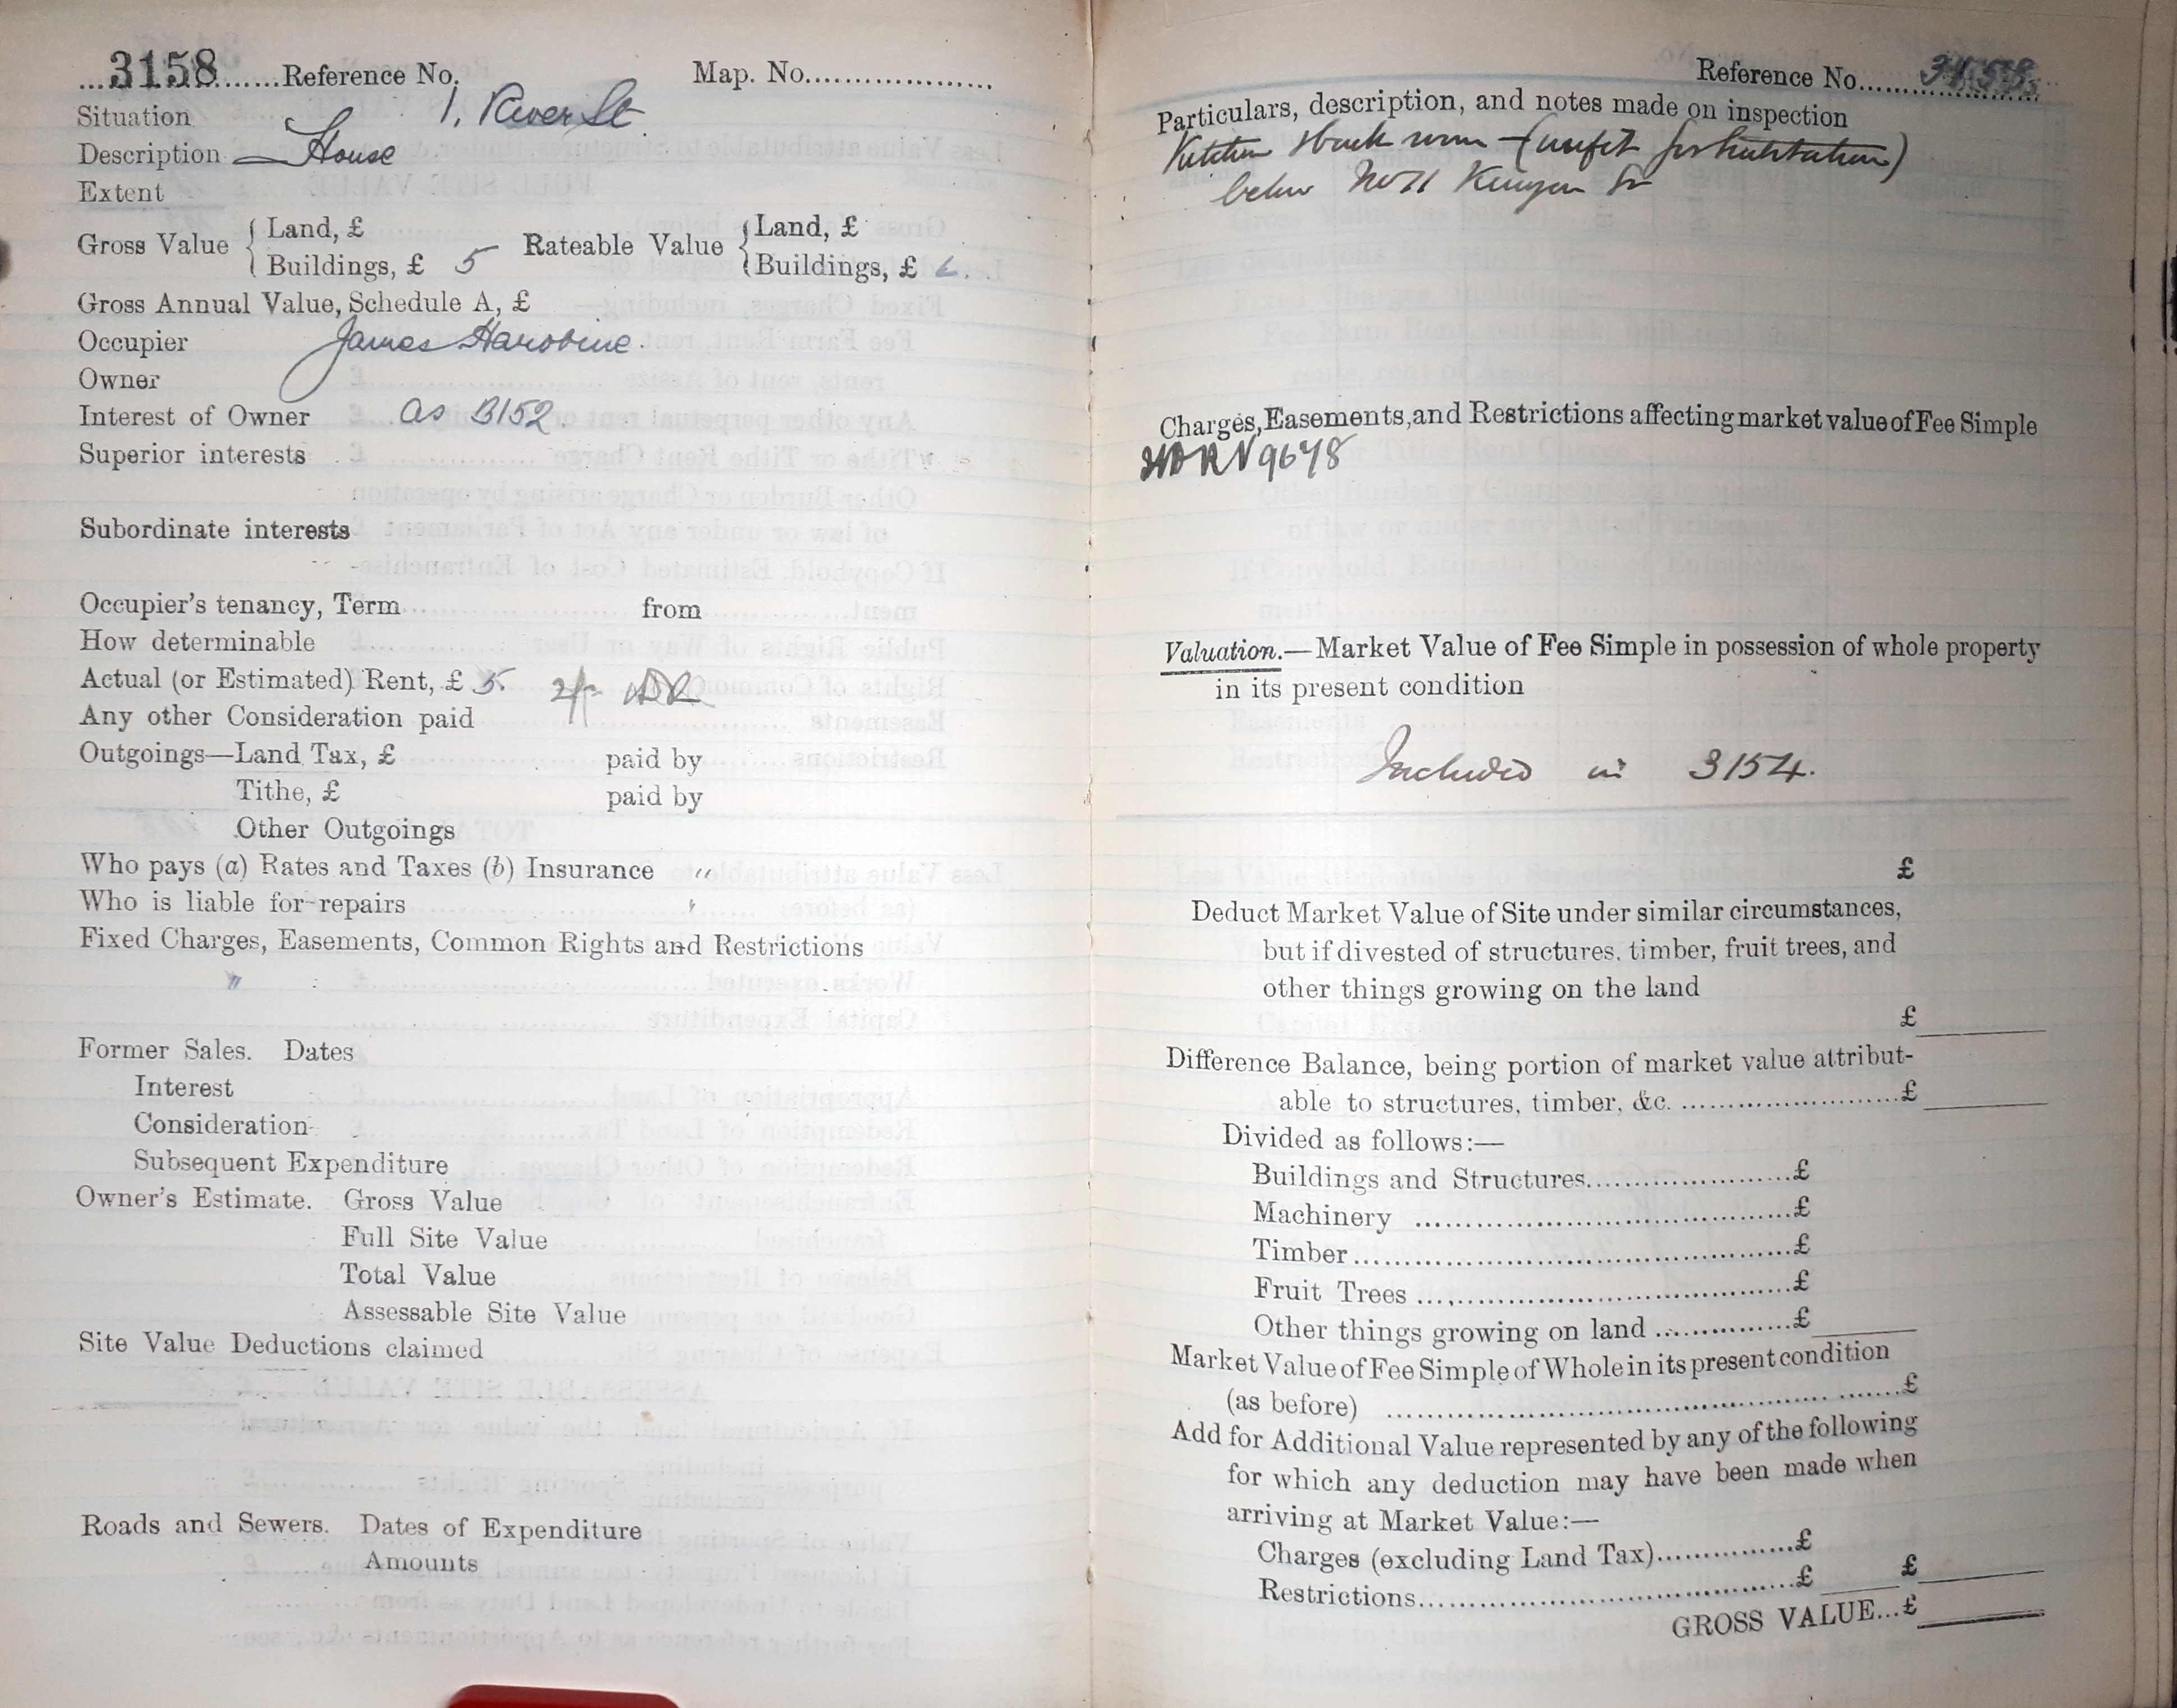 3158 Reference No. Map. No.
Situation 1, River St.
Description House
Extent
Gross Value { Land, £ Rateable Value { Land, £
Buildings, £ 5 Buildings, £
Gross Annual Value, Schedule A, £
Occupier James
Owner
Interest of Owner as 3152.
Superior interests
Subordinate interests
Occupier's tenancy, Term from
How determinable
Actual (or Estimated) Rent, £ 5.
Any other Consideration paid
Outgoings—Land Tax, £ paid by
Tithe, £ paid by
Other Outgoings
Who pays (a) Rates and Taxes (b) Insurance "
Who is liable for repairs
Fixed Charges, Easements, Common Rights and Restrictions
"
Former Sales. Dates
Interest
Consideration
Subsequent Expenditure
Owner's Estimate. Gross Value
Full Site Value
Total Value
Assessable Site Value
Site Value Deductions claimed
Roads and Sewers. Dates of Expenditure
Amounts
Reference No.
Particulars, description, and notes made on inspection
Kitchen & back room (unfit for habitation)
below No 11 Kenyon St
Charges, Easements, and Restrictions affecting market value of Fee Simple
9678
Valuation.—Market Value of Fee Simple in possession of whole property
in its present condition
Included in 3154.
£
Deduct Market Value of Site under similar circumstances,
but if divested of structures, timber, fruit trees, and
other things growing on the land
£
Difference Balance, being portion of market value attribut-
able to structures, timber, &c. £
Divided as follows:—
Buildings and Structures £
Machinery £
Timber £
Fruit Trees £
Other things growing on land £
Market Value of Fee Simple of Whole in its present condition
(as before) £
Add for Additional Value represented by any of the following
for which any deduction may have been made when
arriving at Market Value:—
Charges (excluding Land Tax) £
Restrictions £ £
GROSS VALUE... £